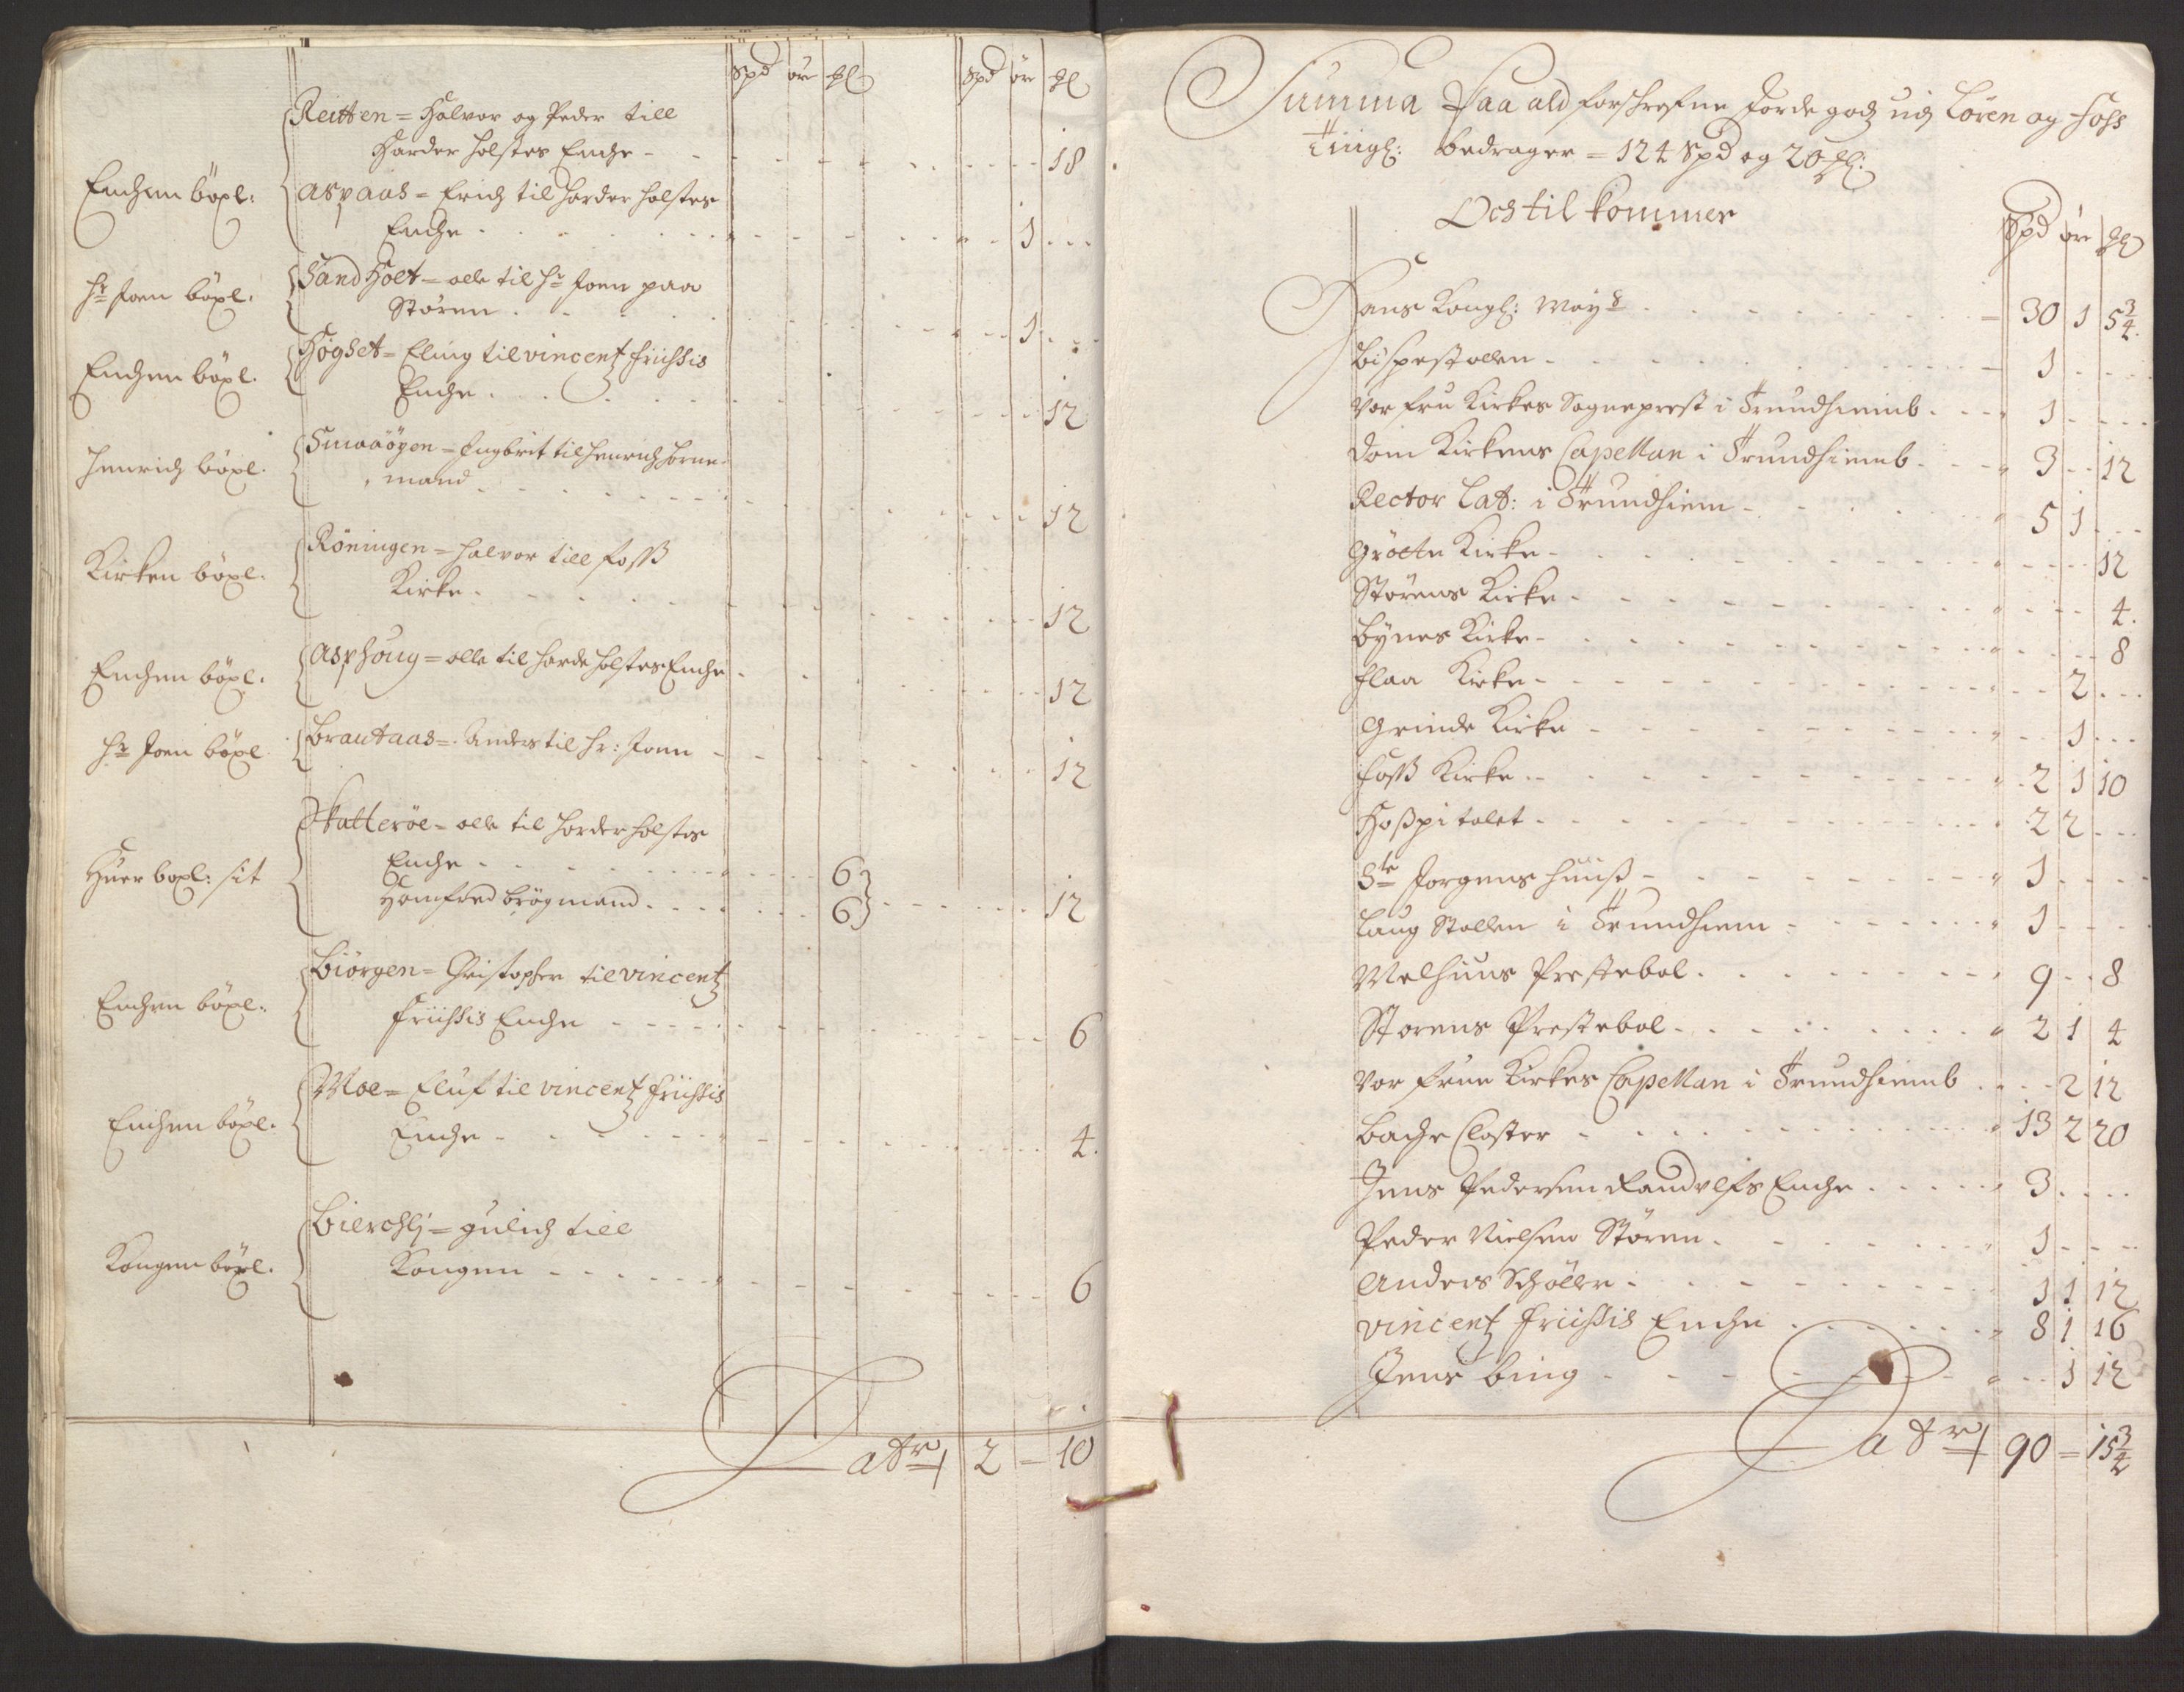 Spd öre ꝑl Spd öre ꝑl
Reitten = Halvor og Peder till
Harder Holstes Enche - 18
Enchen böxl: Aspaas = Erich til Harder Holstes
Enche . 1
Hr Joen böxl: Sand Holt = olle til Hr Joen paa
Stören . 1
Enchen böxl. Högset = Eling til vincentz friissis
Enche . 12
Henrich böxl. Smaaöyen = Ingbrit til Henrich Horne-
mand 12
Kirken böxl. Röningen = Halvor till foss
Kirke . 12
Enchen böxl. Asphoug = olle til Harde Holstes Enche 12
Hr Joen böxl Brautaas = Anders til Hr: Joen - 12
Skatteröe = olle til Harder Holstes
Huer boxl: sit Enche . 6
brögmand . 6 12
Enchen böxl. Biörgen = Christopher til vincentz
friissis Enche 6
Enchen böxl. Moe = Eluf til vincentz friissis
Enche - 4.
Bierchlj = gulich till
Kongen böxl. Kongen 6
Latr 2 - 10
Summa Paa ald forschrefne Jorde godz udj Lören og Foss
Tingl: bedrager = 124 Spd og 20 ꝑl:
Och til kommer
Spd öre ꝑl
Hans Kongl: May: 30 1 5 3/4
bispestollen - 1
Vor fru Kirkes Sogneprest i Trundhiemb . 1
Dom Kirkens Capellan i Trundhiemb . 3 12
Rector Lat: i Trundhiem - 5 1
Grötte Kirke - 12
Störens Kirke - 4.
bynes Kirke - 8
flaa Kirke - 2
Grinde Kirke - 1
foss Kirke . 2 1 10
Hospitalet - 2 2
Ste Jörgens Huus - 1
Laug Stollen i Trundhiem - 1
Melhuus Prestebol . 9 8
Störens Prestebol . 2 1 4
Vor frue Kirkes Capellan i Trundhiemb . 2 12
bache Closter - 13 2 20
Jens Pedersen Randulfs Enche . 3
Peder Nielsen Stören . 1
Anders Schöller . 1 1 12
vincentz friissis Enche . 8 1 16
Jens bing - 1 12
Latr 90 = 15 3/4